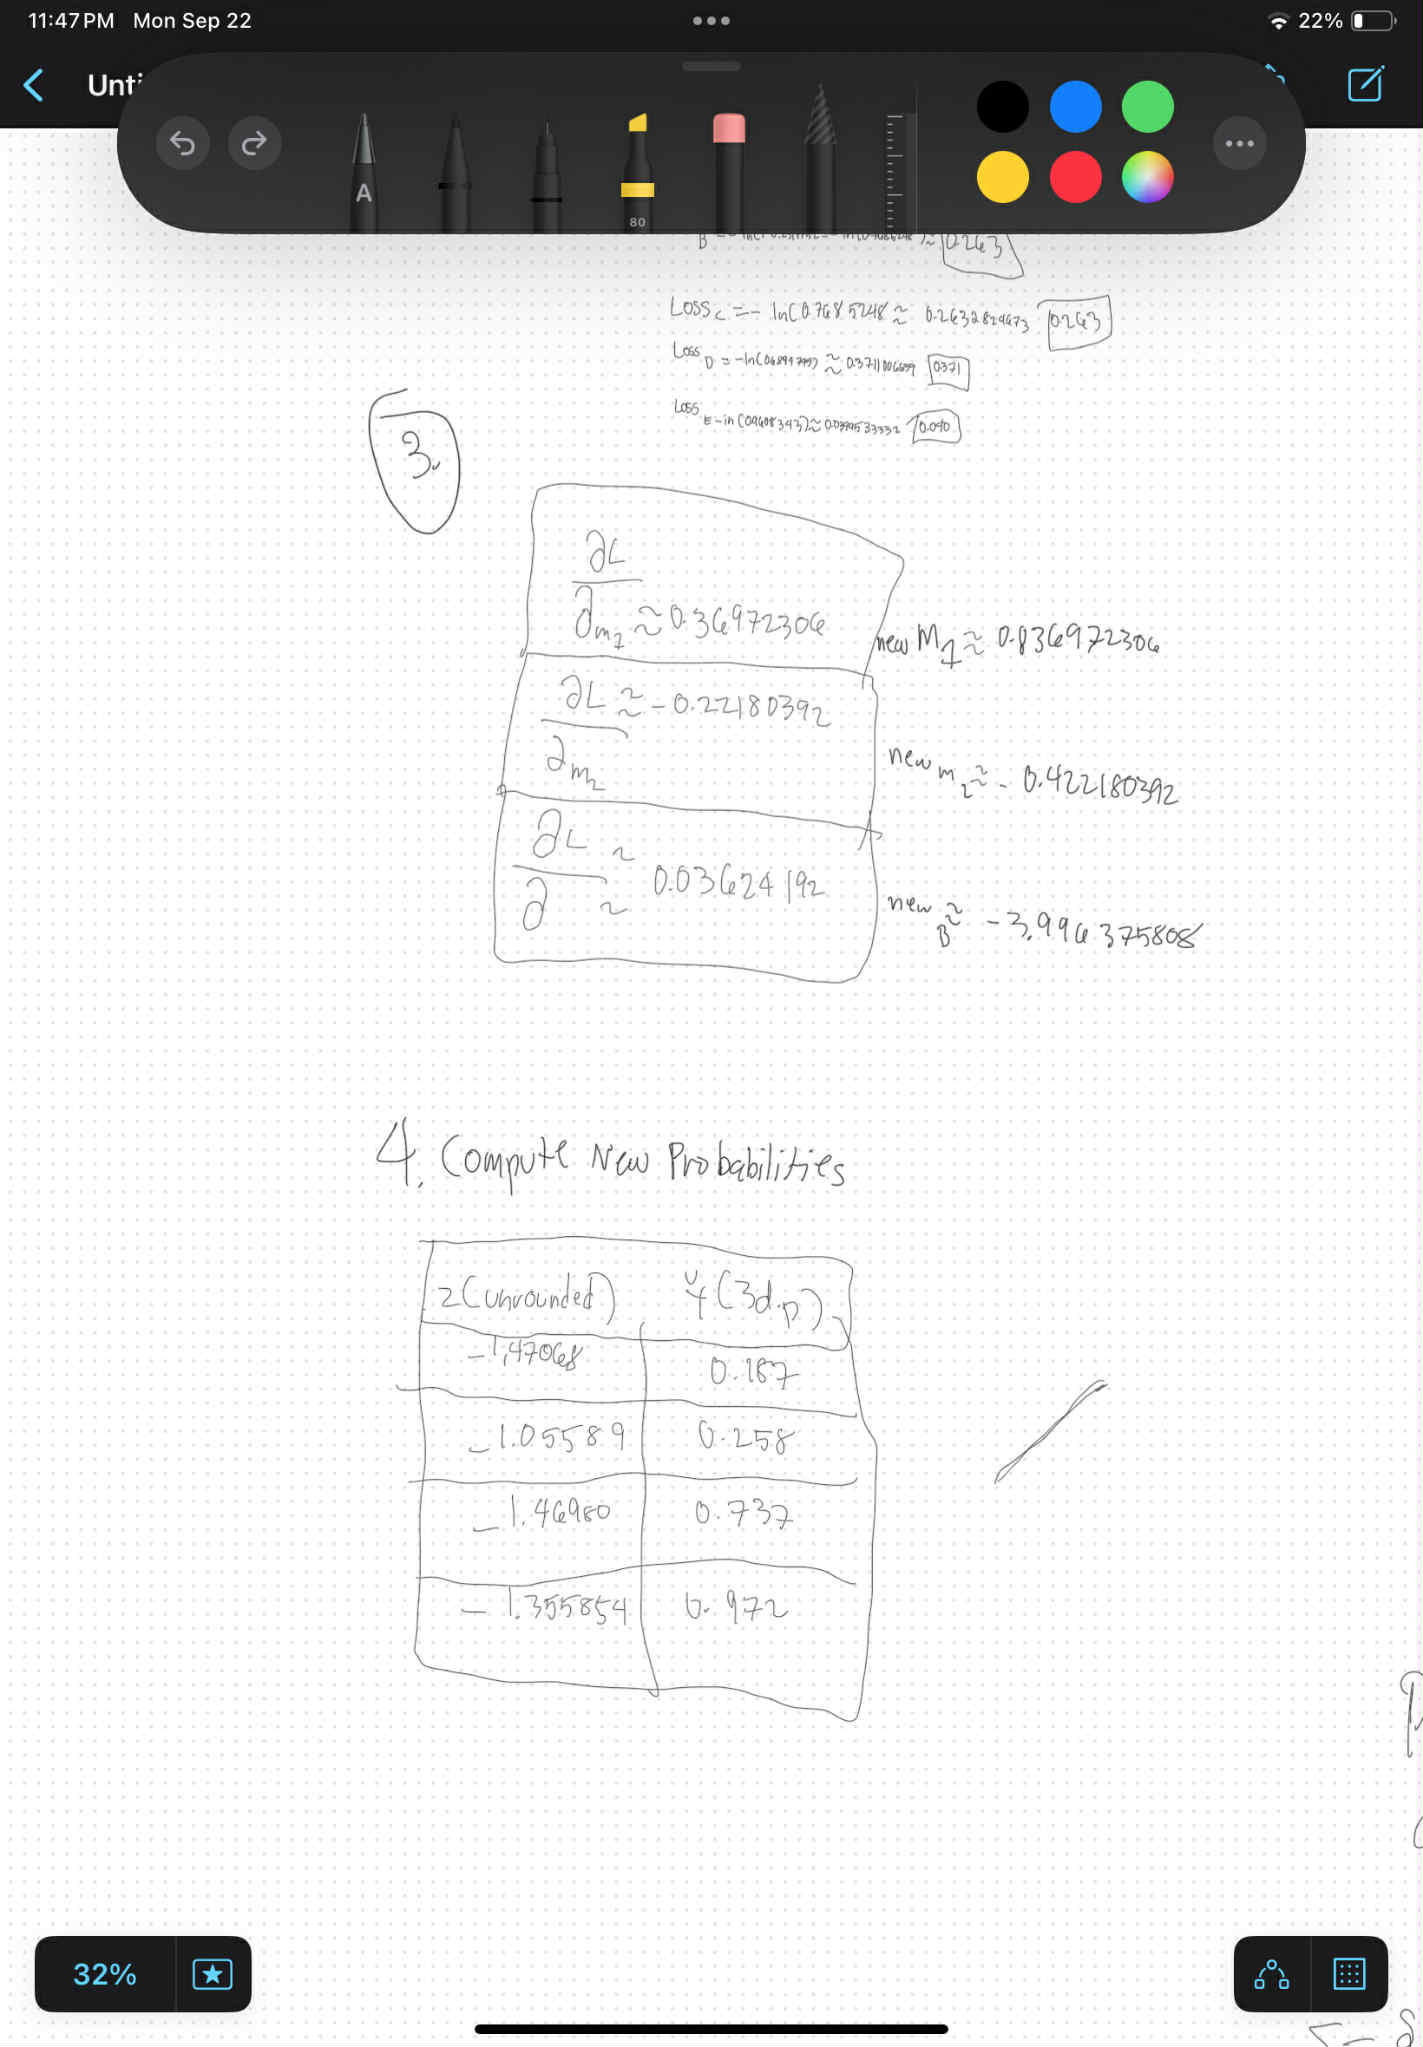 11:47 PM Mon Sep 22
22%
Unti
A
80
0.263
Loss_C = - ln(0.7685248 ≈ 0.2632829673 0.263
Loss_D = -ln(0.68997999) ≈ 0.3711006699 0.371
Loss_E - ln(0.9608343) ≈ 0.0399533332 0.040
3.
∂L
∂m₁ ≈ 0.36972306
new M₁ ≈ 0.836972306
∂L ≈ - 0.22180392
∂m₂
new m₂ ≈ - 0.422180392
∂L
∂ ≈ 0.03624192
new B ≈ -3.996375808
4. Compute New Probabilities
z (unrounded) ŷ (3d.p)
-1.47068 0.187
-1.05589 0.258
-1.46980 0.737
-1.355854 0.972
32%